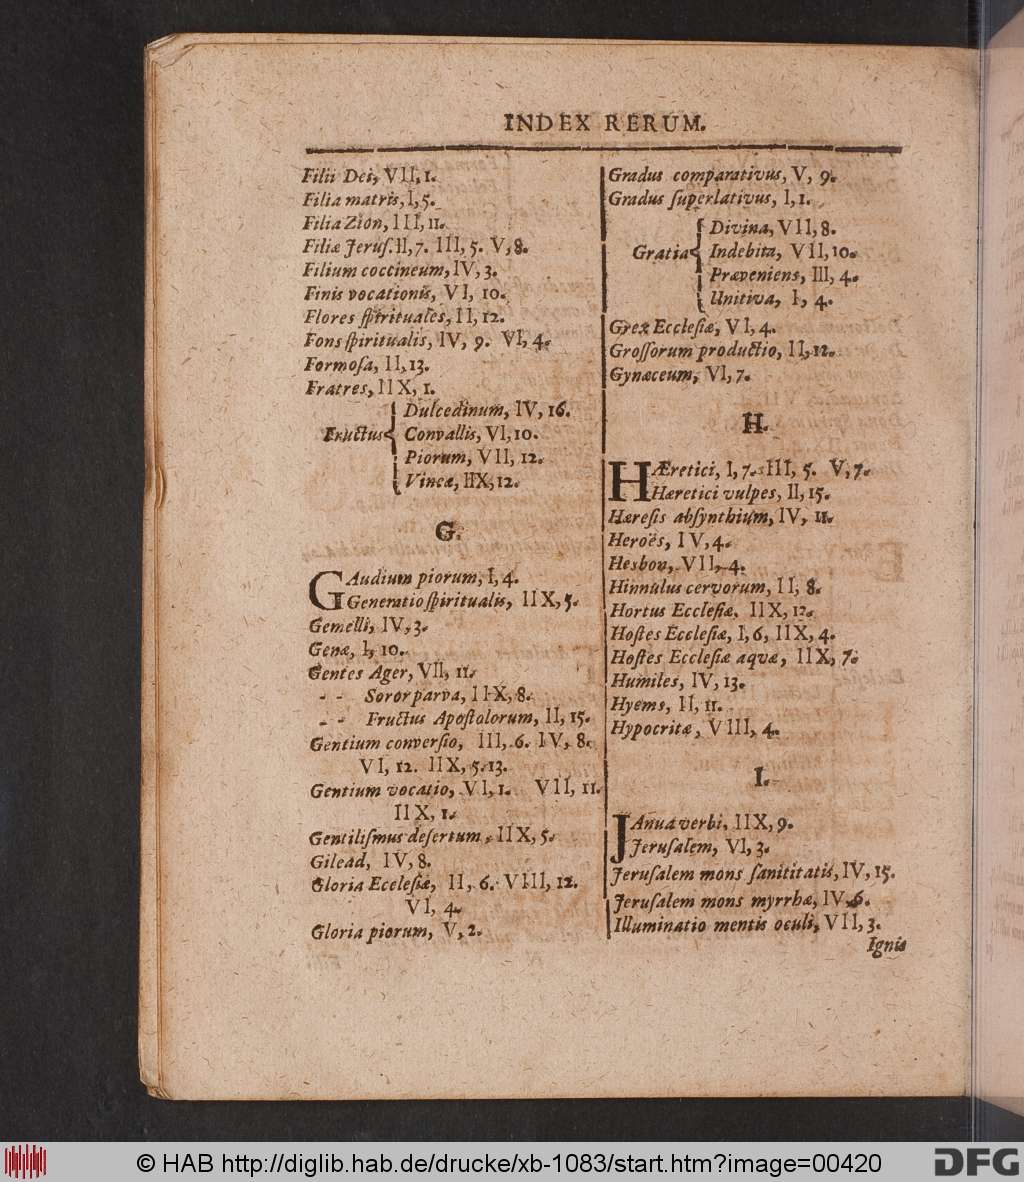 INDEX RERUM.
Filii Dei, VII, 1.
Filia matris, I, 5.
Filia Zion, III, 11.
Filiæ Jeruſ. II, 7. III, 5. V, 8.
Filium coccineum, IV, 3.
Finis vocationis, VI, 10.
Flores ſpirituales, II, 12.
Fons ſpiritualis, IV, 9. VI, 4.
Formoſa, II, 13.
Fratres, IIX, 1.
Dulcedinum, IV, 16.
Fructus Convallis, VI, 10.
Piorum, VII, 12.
Vineæ, IIX, 12.
G.
GAudium piorum, I, 4.
Generatio ſpiritualis, IIX, 5.
Gemelli, IV, 3.
Genæ, I, 10.
Gentes Ager, VII, 11.
- - Soror parva, IIX, 8.
- - Fructus Apoſtolorum, II, 15.
Gentium converſio, III, 6. IV, 8.
VI, 12. IIX, 5. 13.
Gentium vocatio, VI, 1. VII, 11.
IIX, 1.
Gentiliſmus deſertum, IIX, 5.
Gilead, IV, 8.
Gloria Eccleſiæ, II, 6. VIII, 12.
VI, 4.
Gloria piorum, V, 2.
Gradus comparativus, V, 9.
Gradus ſuperlativus, I, 1.
Divina, VII, 8.
Gratia Indebita, VII, 10.
Præveniens, III, 4.
Unitiva, I, 4.
Grex Eccleſiæ, VI, 4.
Groſſorum productio, II, 12.
Gynæceum, VI, 7.
H.
HÆretici, I, 7. III, 5. V, 7.
Hæretici vulpes, II, 15.
Hæreſis abſynthium, IV, 11.
Heroës, IV, 4.
Hesbon, VII, 4.
Hinnulus cervorum, II, 8.
Hortus Eccleſiæ, IIX, 12.
Hoſtes Eccleſiæ, I, 6, IIX, 4.
Hoſtes Eccleſiæ aquæ, IIX, 7.
Humiles, IV, 13.
Hyems, II, 11.
Hypocritæ, VIII, 4.
I.
JAnua verbi, IIX, 9.
Jeruſalem, VI, 3.
Jeruſalem mons ſanititatis, IV, 15.
Jeruſalem mons myrrhæ, IV, 6.
Illuminatio mentis oculi, VII, 3.
Ignis
© HAB http://diglib.hab.de/drucke/xb-1083/start.htm?image=00420
DFG